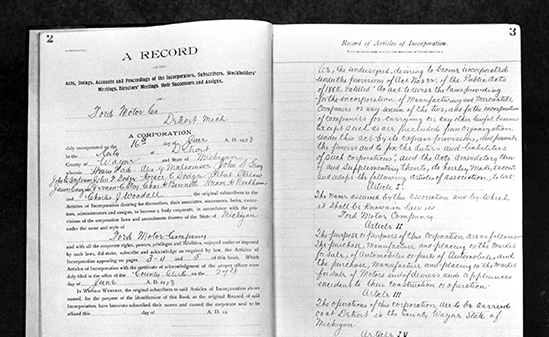 2
A RECORD
OF THE
Acts, Doings, Accounts and Proceedings of the Incorporators, Subscribers, Stockholders'
Meetings, Directors' Meetings, their Successors and Assigns,
Ford Motor Co
Detroit Mich.
A CORPORATION
duly incorporated on the 16th day of June A. D. 1903
in the City of Detroit
County of Wayne and State of Michigan
whereas Henry Ford Alex Y Malcomson John S Gray
John F Dodge Horace E Dodge Albert Strelow
Vernon C Fry Chas H Bennett Horace H Rackham
Charles J Woodall original subscribers to the
Articles of Incorporation desiring for themselves, their associates, successors, heirs, execu-
tors, administrators and assigns, to become a body corporate, in accordance with the pro-
visions of the corporation laws and amendments thereto of the State of Michigan
under the name and style of
Ford Motor Company
and with all the corporate rights, powers, privileges and liabilities, enjoyed under or imposed
by such laws, did make, subscribe and acknowledge as required by law, the Articles of
Incorporation appearing on pages 3-4 and 5 of this Book. Which
Articles of Incorporation with the certificate of acknowledgment of the proper officer were
duly filed in the office of the County Clerk on the
day of June A. D. 1903
In Witness Whereof, the original subscribers to said Articles of Incorporation above
named, for the purpose of the identification of this Book as the Original Record of said
Incorporation, have hereunto subscribed their names and caused the corporate seal to be
affixed this day of A. D. 19
3
Record of Articles of Incorporation.
We, the undersigned, desiring to become incorporated
under the provisions of Act No 232, of the Public Acts
of 1885, entitled "An act to revise the laws providing
for the incorporation of Manufacturing and Mercantile
Companies or any union of the two, and for the incorporation
of companies for carrying on any other lawful business
except such as are precluded from organization
under this act by its express provisions, and to prescribe
the powers and to fix the duties and liabilities
of such corporations", and the acts amendatory thereof
and supplementary thereto, do hereby make, execute
and adopt the following articles of association, to wit:
Article I.
The name assumed by this association and by which
it shall be known in law, is
Ford Motor Company.
Article II
The purpose or purposes of this corporation are as follows
The purchase, manufacture and placing on the market
for sale, of Automobiles or parts of Automobiles and
the purchase, manufacture and placing on the market
for sale of Motors and of devices and appliances
incident to their construction or operation.
Article III
The operations of this corporation are to be carried
on at Detroit in the County Wayne State of
Michigan
Article IV